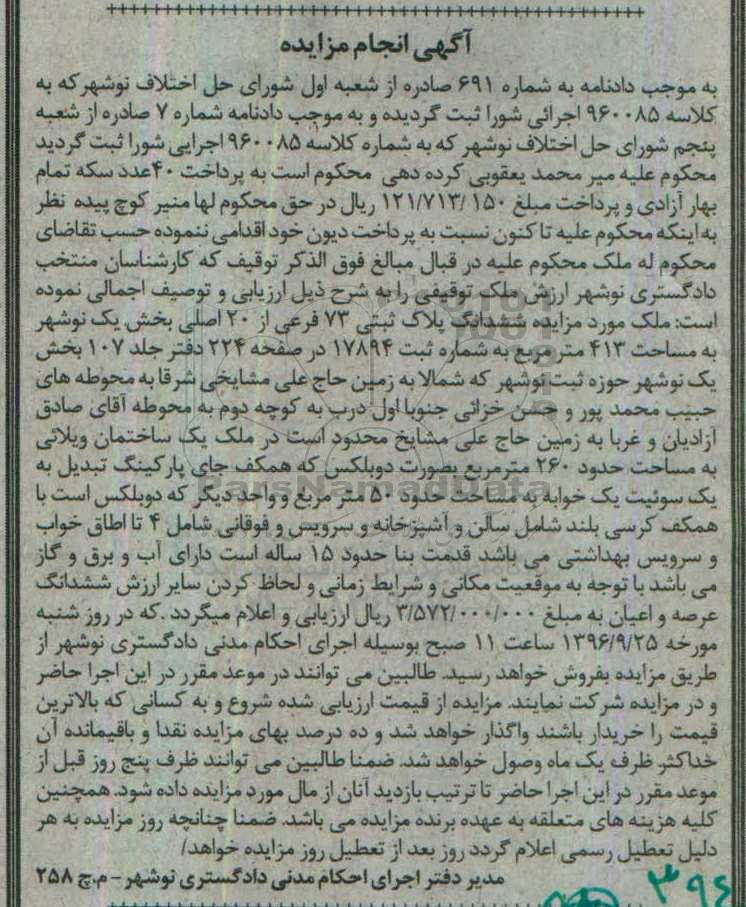 آگهی انجام مزایده
به موجب دادنامه به شماره ۶۹۱ صادره از شعبه اول شورای حل اختلاف نوشهر که به
کلاسه ۹۶۰۰۸۵ اجرائی شورا ثبت گردیده و به موجب دادنامه شماره ۷ صادره از شعبه
پنجم شورای حل اختلاف نوشهر که به شماره کلاسه ۹۶۰۰۸۵ اجرایی شورا ثبت گردید
محکوم علیه میر محمد یعقوبی کرده دهی محکوم است به پرداخت ۴۰عدد سکه تمام
بهار آزادی و پرداخت مبلغ ۱۲۱/۷۱۳/۱۵۰ ریال در حق محکوم لها منیر کوچ پیده نظر
به اینکه محکوم علیه تا کنون نسبت به پرداخت دیون خود اقدامی ننموده حسب تقاضای
محکوم له ملک محکوم علیه در قبال مبالغ فوق الذکر توقیف که کارشناسان منتخب
دادگستری نوشهر ارزش ملک توقیفی را به شرح ذیل ارزیابی و توصیف اجمالی نموده
است: ملک مورد مزایده ششدانگ پلاک ثبتی ۷۳ فرعی از ۲۰ اصلی بخش یک نوشهر
به مساحت ۴۱۳ متر مربع به شماره ثبت ۱۷۸۹۴ در صفحه ۲۲۴ دفتر جلد ۱۰۷ بخش
یک نوشهر حوزه ثبت نوشهر که شمالا به زمین حاج علی مشایخی شرقا به محوطه های
حبیب محمد پور و حسن خزائی جنوبا اول درب به کوچه دوم به محوطه آقای صادق
آزادیان و غربا به زمین حاج علی مشایخ محدود است در ملک یک ساختمان ویلائی
به مساحت حدود ۲۶۰ مترمربع بصورت دوبلکس که همکف جای پارکینگ تبدیل به
یک سوئیت یک خوابه به مساحت حدود ۵۰ متر مربع و واحد دیگر که دوبلکس است با
همکف کرسی بلند شامل سالن و آشپزخانه و سرویس و فوقانی شامل ۴ تا اطاق خواب
و سرویس بهداشتی می باشد قدمت بنا حدود ۱۵ ساله است دارای آب و برق و گاز
می باشد با توجه به موقعیت مکانی و شرایط زمانی و لحاظ کردن سایر ارزش ششدانگ
عرصه و اعیان به مبلغ ۳/۵۷۲/۰۰۰/۰۰۰ ریال ارزیابی و اعلام میگردد .که در روز شنبه
مورخه ۱۳۹۶/۹/۲۵ ساعت ۱۱ صبح بوسیله اجرای احکام مدنی دادگستری نوشهر از
طریق مزایده بفروش خواهد رسید. طالبین می توانند در موعد مقرر در این اجرا حاضر
و در مزایده شرکت نمایند. مزایده از قیمت ارزیابی شده شروع و به کسانی که بالاترین
قیمت را خریدار باشند واگذار خواهد شد و ده درصد بهای مزایده نقدا و باقیمانده آن
حداکثر ظرف یک ماه وصول خواهد شد. ضمنا طالبین می توانند ظرف پنج روز قبل از
موعد مقرر در این اجرا حاضر تا ترتیب بازدید آنان از مال مورد مزایده داده شود. همچنین
کلیه هزینه های متعلقه به عهده برنده مزایده می باشد. ضمنا چنانچه روز مزایده به هر
دلیل تعطیل رسمی اعلام گردد روز بعد از تعطیل روز مزایده خواهد/
مدیر دفتر اجرای احکام مدنی دادگستری نوشهر - م.چ ۲۵۸
ParsNamadData